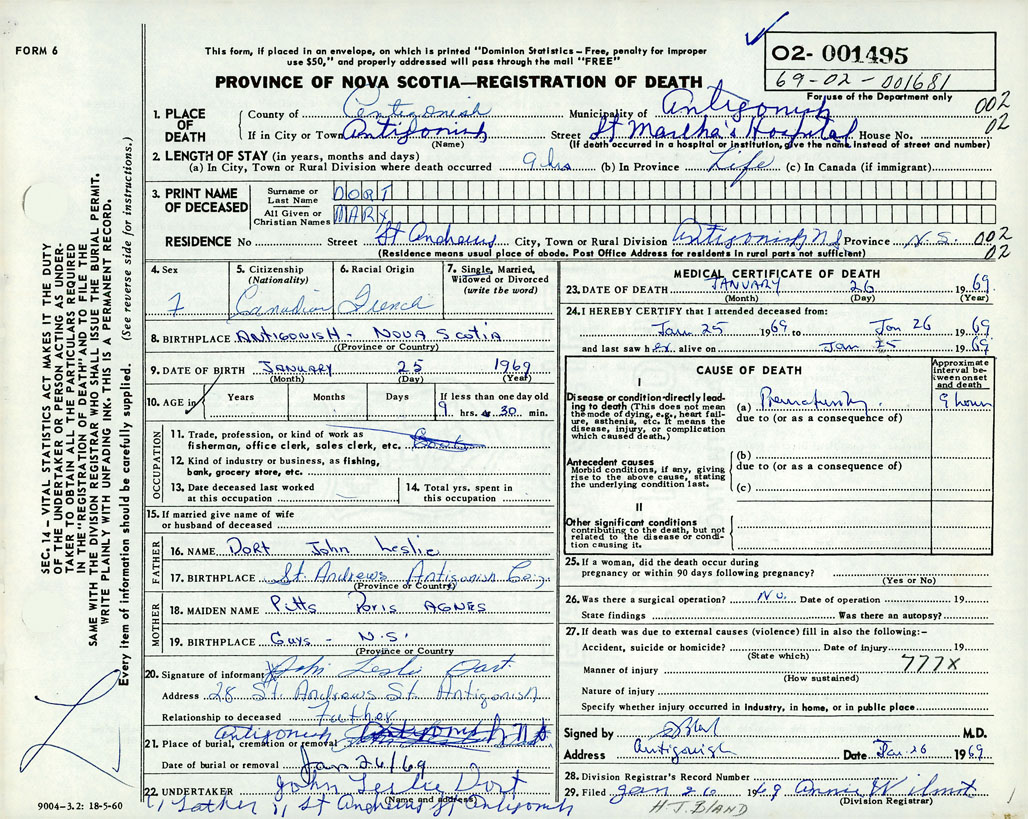 FORM 6
This form, if placed in an envelope, on which is printed "Dominion Statistics – Free, penalty for improper
use $50," and properly addressed will pass through the mail "FREE"
PROVINCE OF NOVA SCOTIA—REGISTRATION OF DEATH
02- 001495
69-02-001681
For use of the Department only
SEC. 14 – VITAL STATISTICS ACT MAKES IT THE DUTY
OF THE UNDERTAKER OR PERSON ACTING AS UNDER-
TAKER TO OBTAIN ALL THE PARTICULARS REQUIRED
IN THE "REGISTRATION OF DEATH" AND TO FILE THE
SAME WITH THE DIVISION REGISTRAR WHO SHALL ISSUE THE BURIAL PERMIT.
WRITE PLAINLY WITH UNFADING INK. THIS IS A PERMANENT RECORD.
Every item of information should be carefully supplied. (See reverse side for instructions.)
1. PLACE OF DEATH
County of Antigonish Municipality of Antigonish 002
If in City or Town Antigonish Street St Martha's Hospital House No. 02
(Name) (If death occurred in a hospital or institution, give the name instead of street and number)
2. LENGTH OF STAY (in years, months and days)
(a) In City, Town or Rural Division where death occurred 9 hrs (b) In Province Life (c) In Canada (if immigrant)
3. PRINT NAME OF DECEASED
Surname or Last Name DORT
All Given or Christian Names MARY
RESIDENCE No Street St Andrews City, Town or Rural Division Antigonish N S Province N.S. 002
(Residence means usual place of abode. Post Office Address for residents in rural parts not sufficient) 02
4. Sex F
5. Citizenship (Nationality) Canadian
6. Racial Origin French
7. Single, Married, Widowed or Divorced (write the word)
8. BIRTHPLACE ANTIGONISH - NOVA SCOTIA
(Province or Country)
9. DATE OF BIRTH JANUARY 25 1969
(Month) (Day) (Year)
10. AGE in Years Months Days If less than one day old
9 hrs. 30 min.
OCCUPATION
11. Trade, profession, or kind of work as
fisherman, office clerk, sales clerk, etc.
12. Kind of industry or business, as fishing,
bank, grocery store, etc.
13. Date deceased last worked
at this occupation
14. Total yrs. spent in
this occupation
15. If married give name of wife
or husband of deceased
FATHER
16. NAME DORT John Leslie
17. BIRTHPLACE St. Andrews Antigonish Co.
(Province or Country)
MOTHER
18. MAIDEN NAME Pitts Doris AGNES
19. BIRTHPLACE Guys - N.S.
(Province or Country)
20. Signature of informant John Leslie Dort
Address 28 St. Andrews St. Antigonish
Relationship to deceased Father
Antigonish
21. Place of burial, cremation or removal Antigonish N S
Date of burial or removal Jan 26/69
22. UNDERTAKER John Leslie Dort
(Name and address)
Father St Andrews St Antigonish
9004-3.2: 18-5-60
MEDICAL CERTIFICATE OF DEATH
23. DATE OF DEATH JANUARY 26 1969
(Month) (Day) (Year)
24. I HEREBY CERTIFY that I attended deceased from:
Jan 25 1969 to Jan 26 1969
and last saw her alive on Jan 25 1969
CAUSE OF DEATH
Approximate interval between onset and death
I
Disease or condition directly lead-
ing to death (This does not mean
the mode of dying, e.g., heart fail-
ure, asthenia, etc. It means the
disease, injury, or complication
which caused death.)
(a) Prematurity. 9 hours
due to (or as a consequence of)
Antecedent causes
Morbid conditions, if any, giving
rise to the above cause, stating
the underlying condition last.
(b)
due to (or as a consequence of)
(c)
II
Other significant conditions
contributing to the death, but not
related to the disease or condi-
tion causing it.
25. If a woman, did the death occur during
pregnancy or within 90 days following pregnancy?
(Yes or No)
26. Was there a surgical operation? No. Date of operation 19
State findings Was there an autopsy?
27. If death was due to external causes (violence) fill in also the following:–
Accident, suicide or homicide? Date of injury 19
(State which)
Manner of injury 777X
(How sustained)
Nature of injury
Specify whether injury occurred in industry, in home, or in public place
Signed by M.D.
Address Antigonish Date Jan. 26 1969
28. Division Registrar's Record Number
29. Filed Jan 26 1969 Annie Wilmot
(Division Registrar)
H J. BLAND